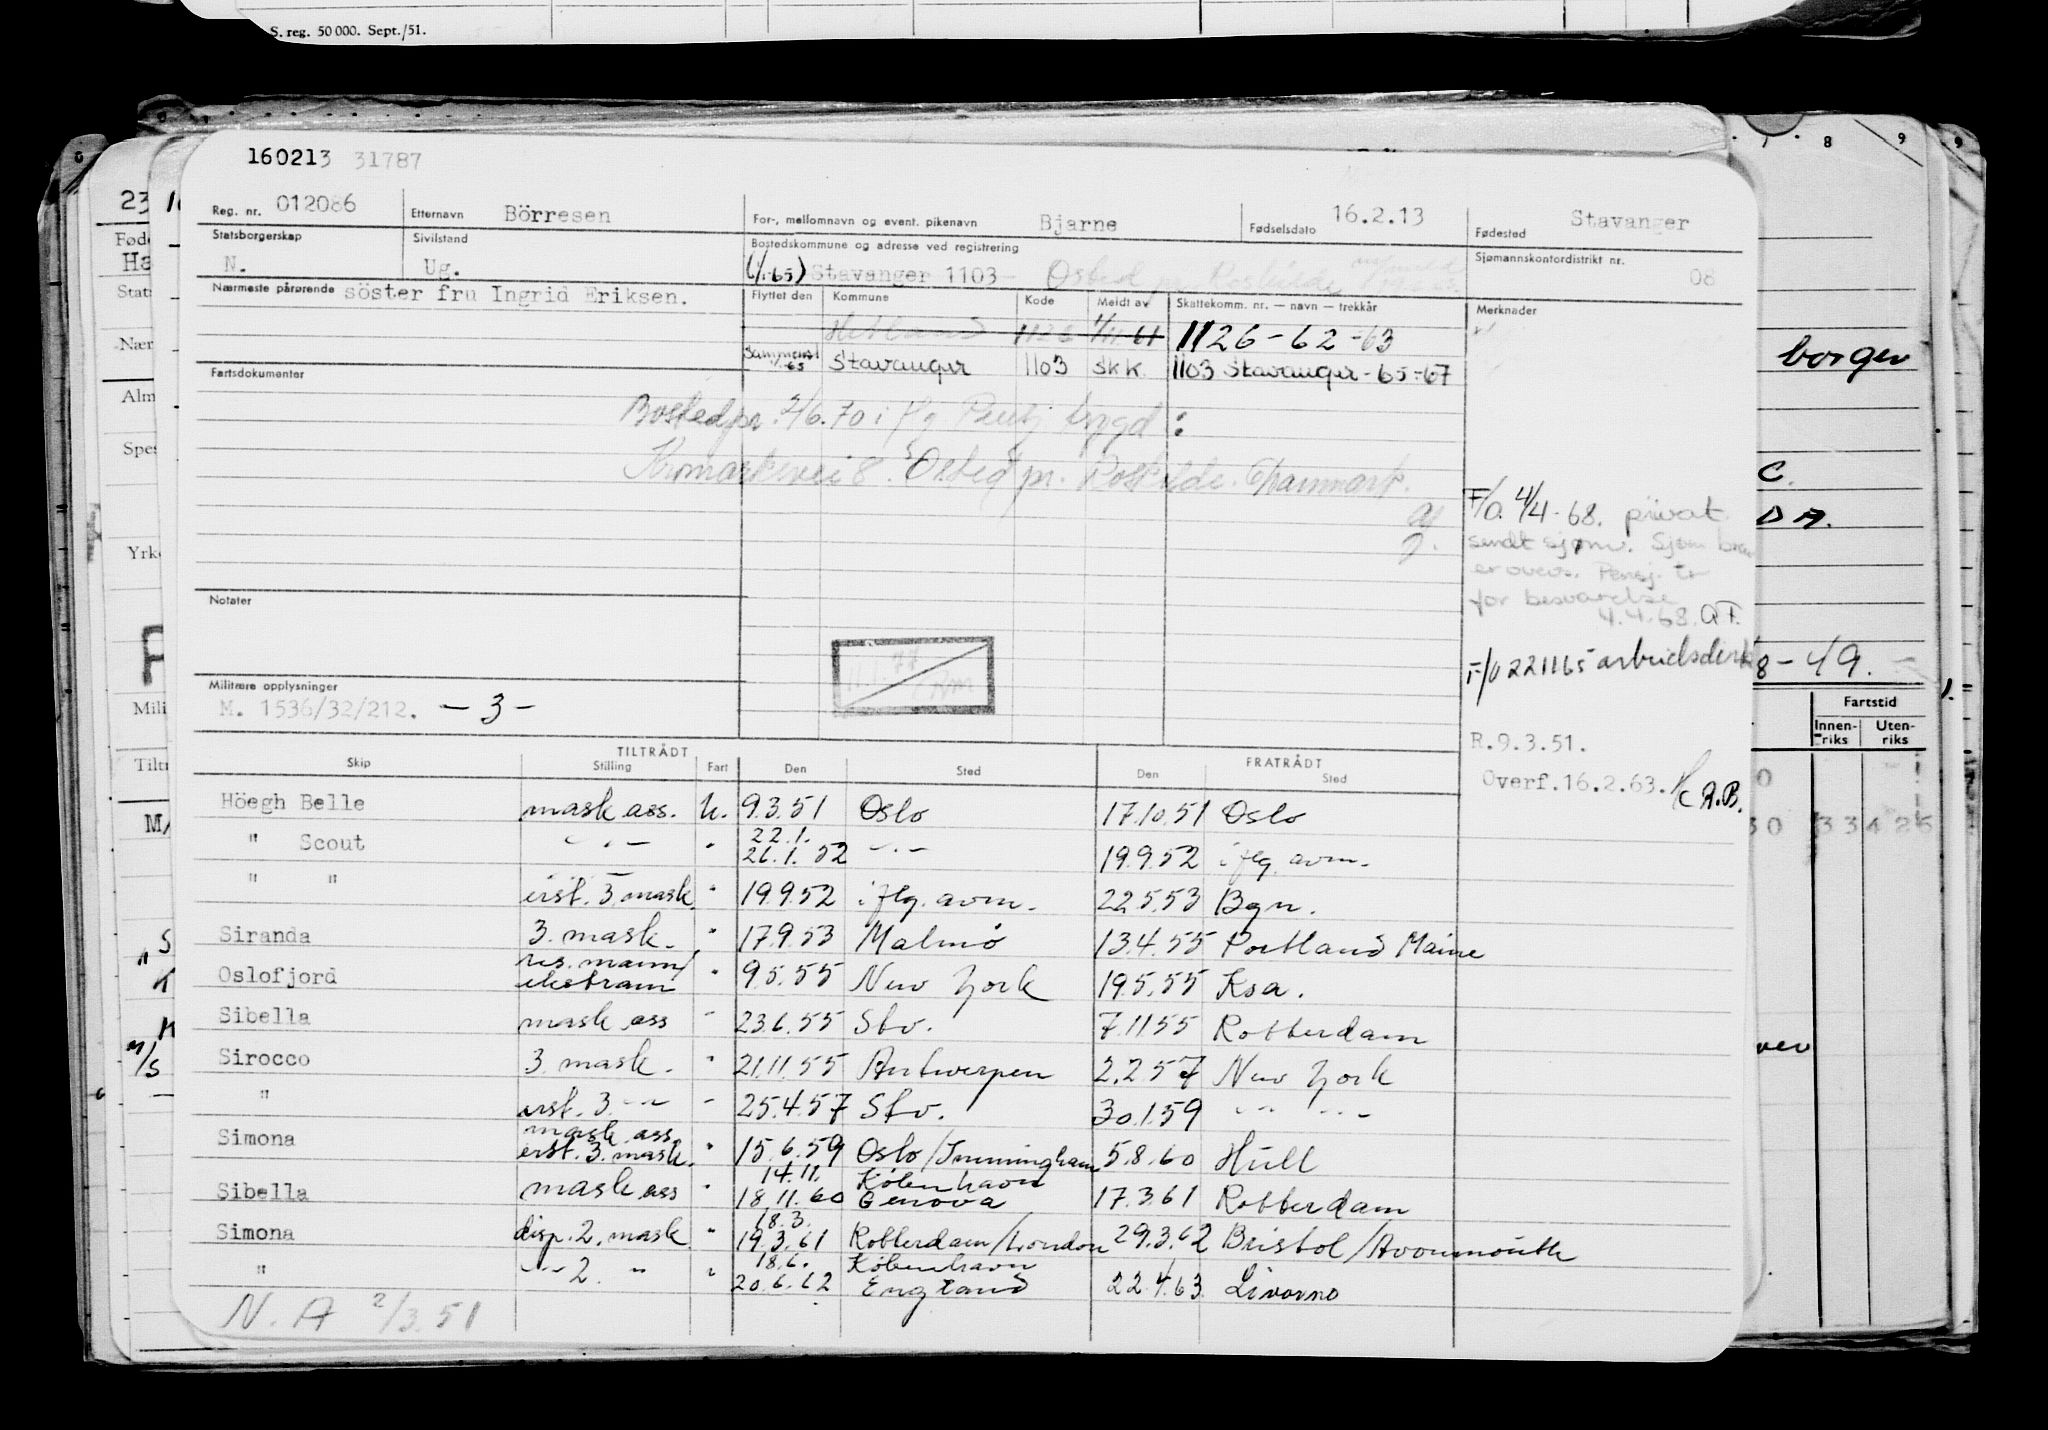 S. reg. 50 000. Sept./51.
160213 31787
Reg. nr. 012086 Etternavn Börresen For-, mellomnavn og event. pikenavn Bjarne Fødselsdato 16.2.13 Fødested Stavanger
Statsborgerskap N. Sivilstand Ug. Bostedskommune og adresse ved registrering Stavanger 1103 - Osted pr Roskilde Sjømannskontordistrikt nr. 08
Nærmeste pårørende söster fru Ingrid Eriksen. Flyttet den Kommune Kode Meldt av Skattekomm. nr. — navn — trekkår Merknader
Hetland 1126 1/11 61 1126-62-63
65 Stavanger 1103 skk 1103 Stavanger-65-67
Fartsdokumenter
Bosted pr. 2/6.70 i flg Pensj trygd :
Osted pr. Roskilde. Danmark.
F/O. 4/4-68. privat
sendt sjømv.
for besvarelse
4.4.68. QF.
Notater
F/O 221165 arbeidsdir
Militære opplysninger
M. 1536/32/212. - 3 -
R.9.3.51.
Overf.16.2.63. A.B.
TILTRÅDT FRATRÅDT
Skip Stilling Fart Den Sted Den Sted
Höegh Belle mask ass. U. 9.3.51 Oslo 17.10.51 Oslo
" Scout -"- " 22.1. 26.1.52 -"- 19.9.52 i flg. avm.
" " erst. 3. mask. " 19.9.52 i flg. avm. 22.5.53 Bgn.
Siranda 3. mask. " 17.9.53 Malmö 13.4.55 Portland Maine
Oslofjord res. mann/ ekstram " 9.5.55 New York 19.5.55 Ksa.
Sibella mask ass " 23.6.55 Stv. 7.11.55 Rotterdam
Sirocco 3. mask. " 21.11.55 Antwerpen 2.2.57 New York
" erst. 3. -"- " 25.4.57 Stv. 30.1.59 -"- -"-
Simona mask ass erst. 3. mask. " 15.6.59 Oslo/Immingham 5.8.60 Hull
Sibella mask ass " 14.11. 18.11.60 København Genova 17.3.61 Rotterdam
Simona disp. 2. mask. " 18.3. 19.3.61 Rotterdam/London 29.3.62 Bristol/Avonmouth
" -"- 2. " " 18.6. 20.6.62 København England 22.4.63. Livorno
N. A 2/3.51
borger
C.
D A.
8-49.
Fartstid
Innen-riks Uten-riks